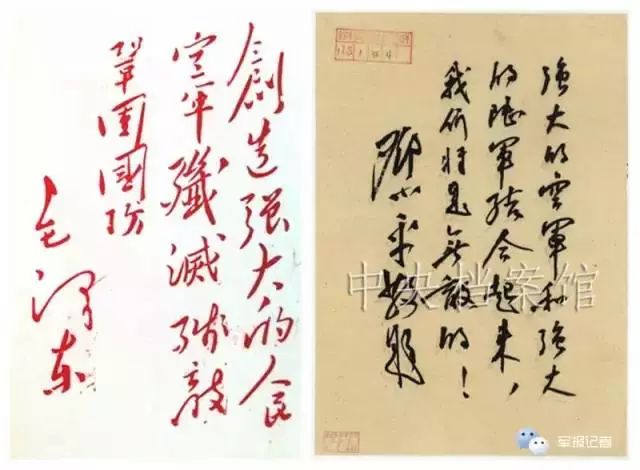 創造强大的人民
空軍殲滅殘敵
鞏固國防
毛澤東
強大的空軍和強大
的陸軍結合起來，
我們將是無敵的！
鄧小平
中央档案馆
军报记者